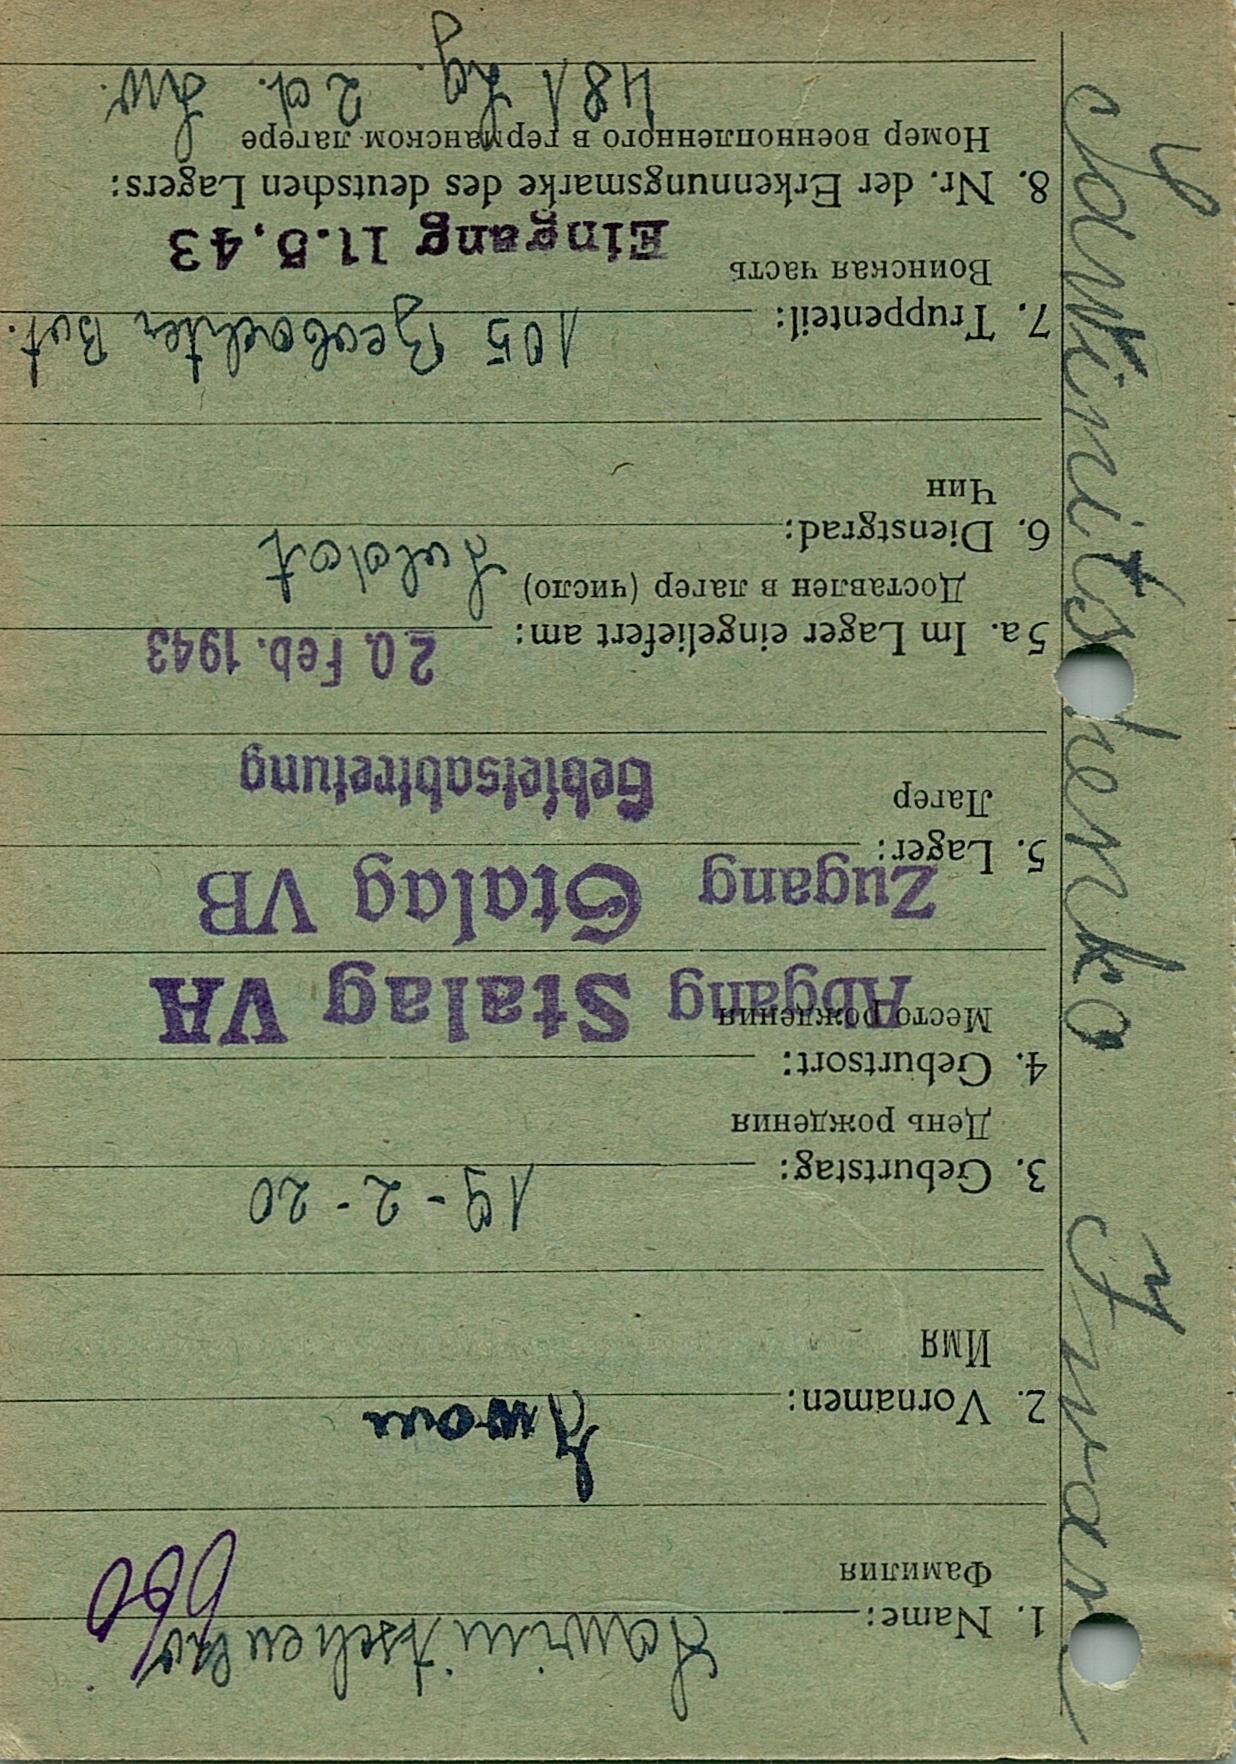 1. Name: Sawinitschenko
Фамилия
2. Vornamen: Iwan
Имя
3. Geburtstag: 19-2-20
День рождения
4. Geburtsort:
Место рождения
Abgang Stalag VA
Zugang Stalag VB
5. Lager:
Лагер
Gebietsabtretung
5a. Im Lager eingeliefert am: 20. Feb. 1943
Доставлен в лагер (число)
6. Dienstgrad: Soldat
Чин
7. Truppenteil: 105 Beobachter Bat.
Воинская часть
Eingang 11.5.43
8. Nr. der Erkennungsmarke des deutschen Lagers:
Номер военнопленного в германском лагере
481 Lg. 2 d. Lw.
Sawinitschenko Iwan